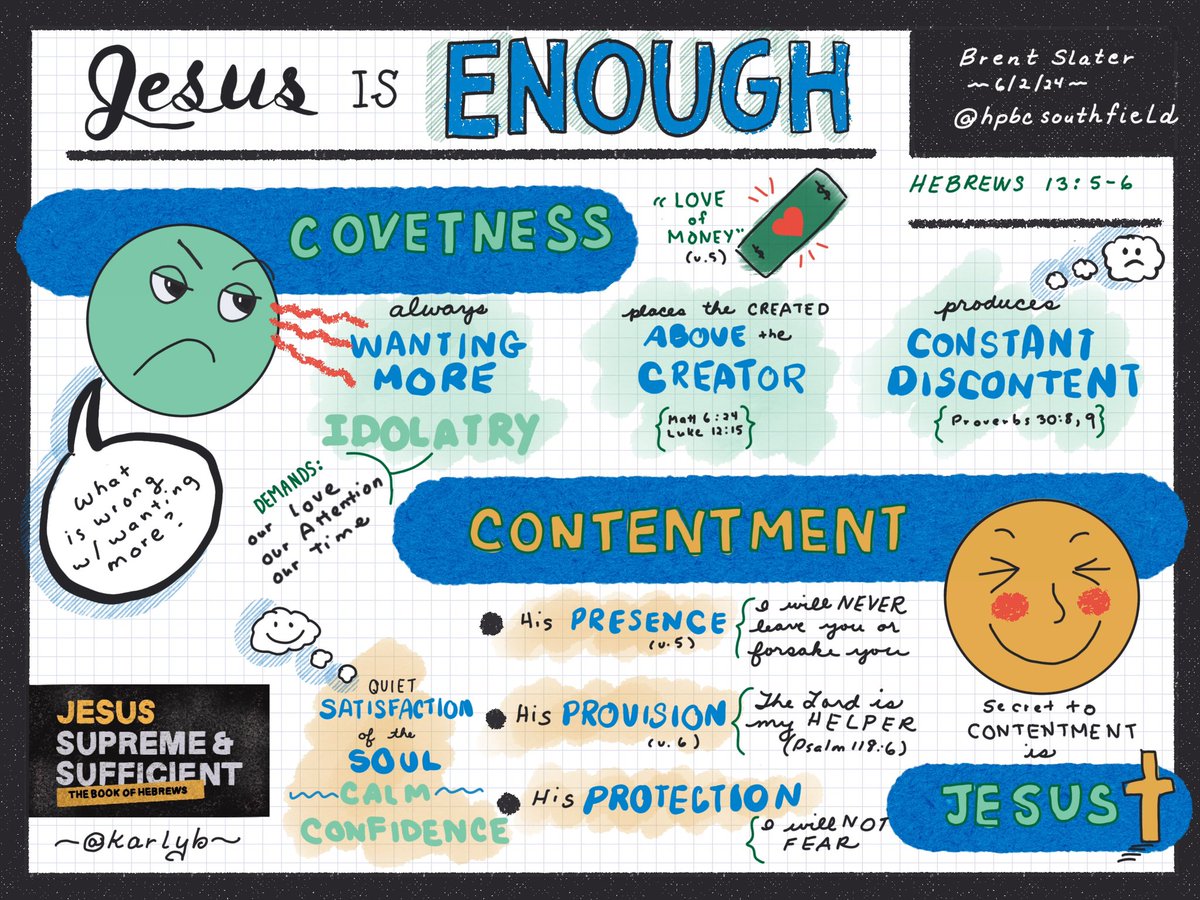 Jesus IS ENOUGH
Brent Slater
~6/2/24~
@hpbcsouthfield
HEBREWS 13:5-6
COVETNESS
"LOVE
of
MONEY"
(v.5)
$
$
always
WANTING
MORE
IDOLATRY
DEMANDS:
our LOVE
our Attention
our time
places the CREATED
ABOVE the
CREATOR
{Matt 6:24
Luke 12:15}
produces
CONSTANT
DISCONTENT
{Proverbs 30:8,9}
what
is wrong
w/ wanting
more?
CONTENTMENT
QUIET
SATISFACTION
of the
SOUL
~CALM~
CONFIDENCE
His PRESENCE
(v.5)
I will NEVER
leave you or
forsake you
His PROVISION
(v.6)
The Lord is
my HELPER
(Psalm 118:6)
His PROTECTION
I will NOT
FEAR
Secret to
CONTENTMENT
is
JESUS
JESUS
SUPREME &
SUFFICIENT
THE BOOK OF HEBREWS
~@karlyb~